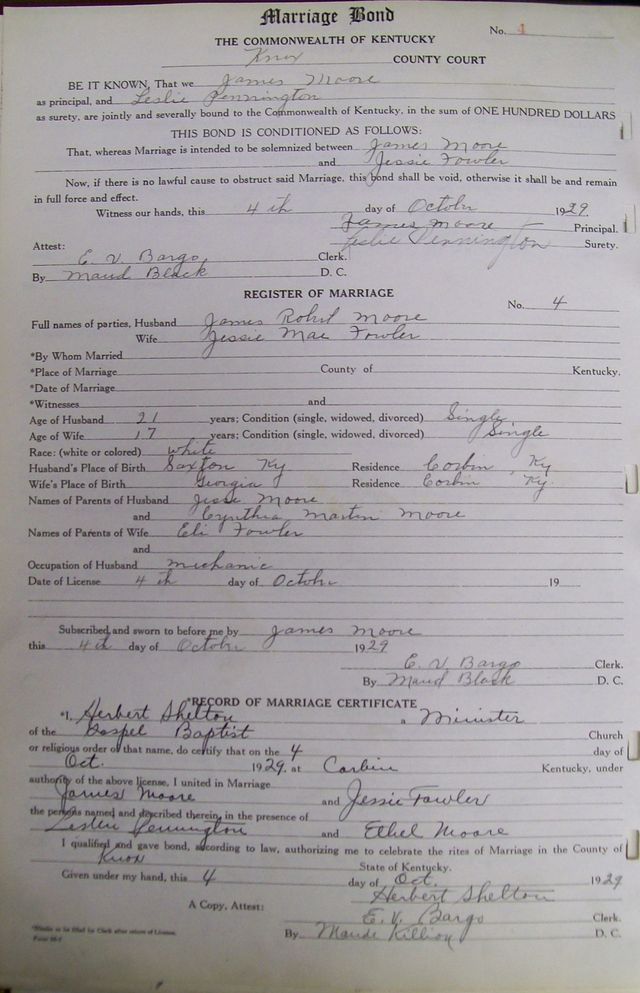 Marriage Bond
No. 4
THE COMMONWEALTH OF KENTUCKY
Knox COUNTY COURT
BE IT KNOWN, That we James Moore
as principal, and Leslie Pennington
as surety, are jointly and severally bound to the Commonwealth of Kentucky, in the sum of ONE HUNDRED DOLLARS
THIS BOND IS CONDITIONED AS FOLLOWS:
That, whereas Marriage is intended to be solemnized between James Moore
and Jessie Fowler
Now, if there is no lawful cause to obstruct said Marriage, this bond shall be void, otherwise it shall be and remain
in full force and effect.
Witness our hands, this 4th day of October 1929.
James Moore Principal.
Leslie Pennington Surety.
Attest:
E. V. Bargo, Clerk.
By Maud Black D. C.
REGISTER OF MARRIAGE
No. 4
Full names of parties, Husband James Robert Moore
Wife Jessie Mae Fowler
*By Whom Married
*Place of Marriage County of Kentucky.
*Date of Marriage
*Witnesses and
Age of Husband 21 years; Condition (single, widowed, divorced) Single
Age of Wife 17 years; Condition (single, widowed, divorced) Single
Race: (white or colored) white
Husband's Place of Birth Saxton Ky Residence Corbin, Ky
Wife's Place of Birth Georgia Residence Corbin Ky.
Names of Parents of Husband Jesse Moore
and Cynthia Martin Moore
Names of Parents of Wife Eli Fowler
and
Occupation of Husband mechanic
Date of License 4th day of October 19
Subscribed and sworn to before me by James Moore
this 4th day of October 1929
E. V. Bargo Clerk.
By Maud Black D. C.
*RECORD OF MARRIAGE CERTIFICATE
*I, Herbert Shelton a Minister
of the Gospel Baptist Church
or religious order of that name, do certify that on the 4 day of
Oct. 1929. at Corbin Kentucky, under
authority of the above license, I united in Marriage
James Moore and Jessie Fowler
the persons named and described therein, in the presence of
Leslie Pennington and Ethel Moore
I qualified and gave bond, according to law, authorizing me to celebrate the rites of Marriage in the County of
Knox State of Kentucky.
Given under my hand, this 4 day of Oct. 1929
Herbert Shelton
A Copy, Attest: E. V. Bargo Clerk.
By Maude Killion D. C.
*Blanks to be filled by Clerk after return of License.